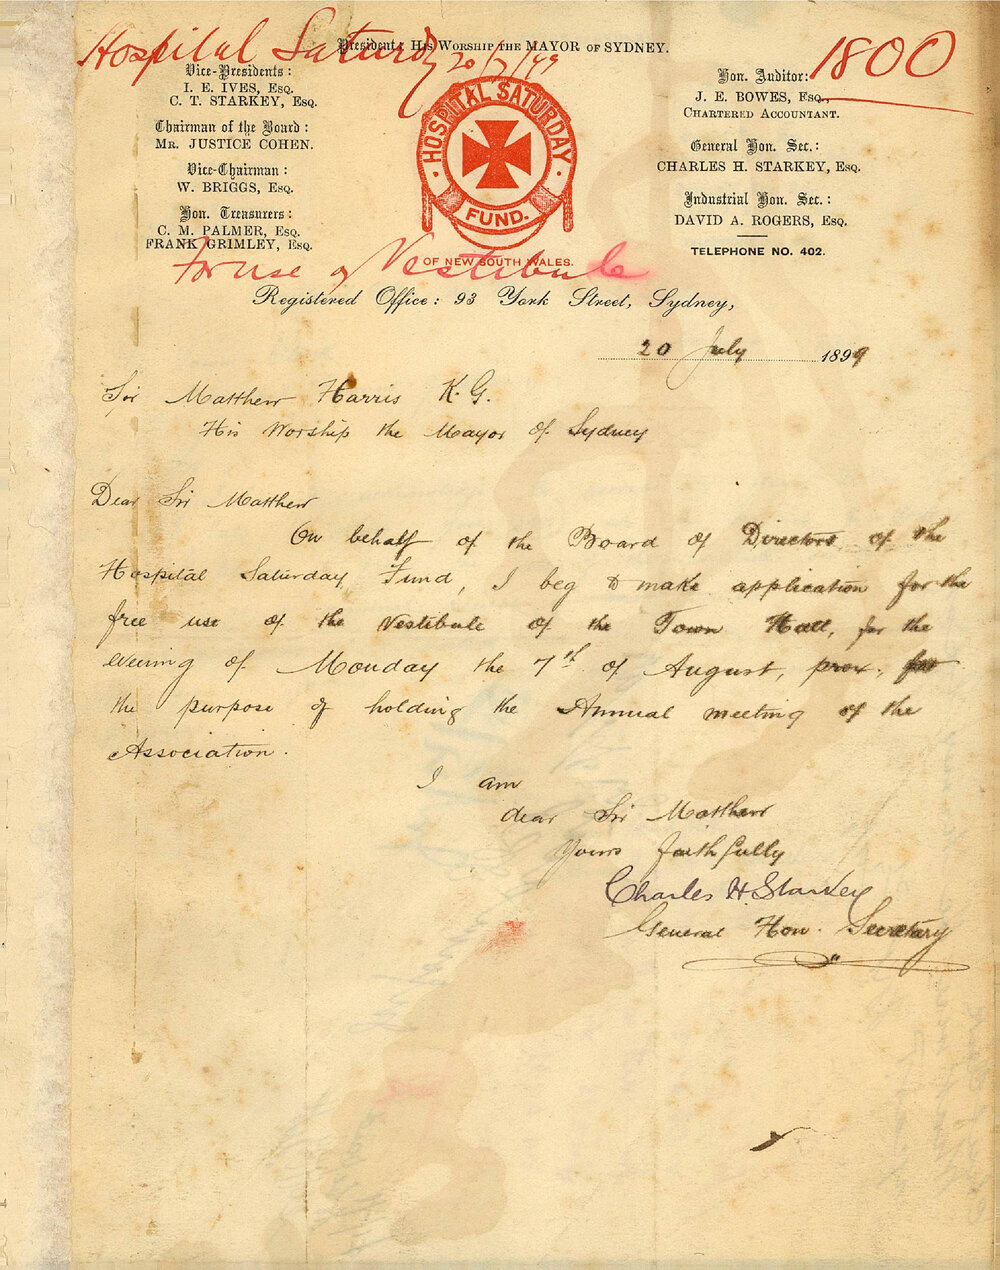 Hospital Saturdy 20/7/99
1800
President: His Worship the MAYOR of SYDNEY.
Vice-Presidents:
I. E. IVES, Esq.
C. T. STARKEY, Esq.
Chairman of the Board:
Mr. JUSTICE COHEN.
Vice-Chairman:
W. BRIGGS, Esq.
Hon. Treasurers:
C. M. PALMER, Esq.
FRANK GRIMLEY, Esq.
HOSPITAL SATURDAY
FUND.
OF NEW SOUTH WALES.
Hon. Auditor:
J. E. BOWES, Esq.,
Chartered Accountant.
General Hon. Sec.:
CHARLES H. STARKEY, Esq.
Industrial Hon. Sec.:
DAVID A. ROGERS, Esq.
TELEPHONE NO. 402.
For use of Vestibule
Registered Office: 93 York Street, Sydney,
20 July 1899
Sir Matthew Harris K.G.
His Worship the Mayor of Sydney
Dear Sir Matthew
On behalf of the Board of Directors of the
Hospital Saturday Fund, I beg to make application for the
free use of the Vestibule of the Town Hall, for the
evening of Monday the 7th of August, prox, for
the purpose of holding the Annual meeting of the
Association.
I am
dear Sir Matthew
Yours faithfully
Charles H. Starkey
General Hon. Secretary